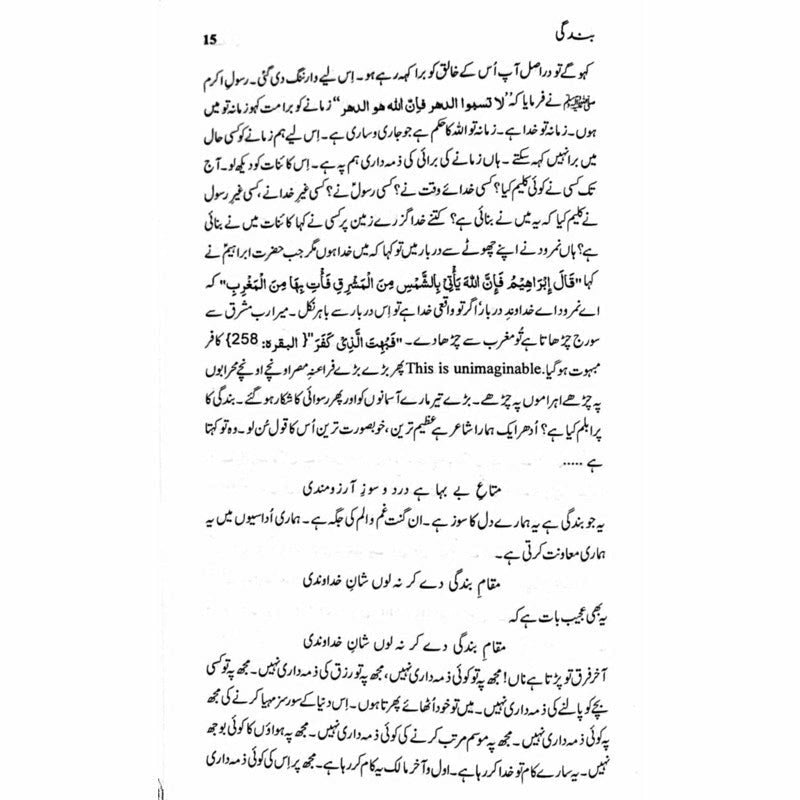 بندگی 15
کہو گے تو دراصل آپ اُس کے خالق کو برا کہہ رہے ہو۔ اِس لیے وارننگ دی گئی۔ رسولِ اکرم
ﷺ نے فرمایا کہ "لا تسبوا الدھر فإنّ اللہ ھو الدھر" زمانے کو برا مت کہو زمانہ تو میں
ہوں۔ زمانہ تو خدا ہے۔ زمانہ تو اللہ کا حکم ہے جو جاری و ساری ہے۔ اِس لیے ہم زمانے کو کسی حال
میں برا نہیں کہہ سکتے۔ ہاں زمانے کی برائی کی ذمہ داری ہم پہ ہے۔ اِس کائنات کو دیکھ لو۔ آج
تک کسی نے کوئی کلیم کیا؟ کسی خدائے وقت نے؟ کسی رسولؐ نے؟ کسی غیرِ خدا نے، کسی غیرِ رسول
نے کلیم کیا کہ یہ میں نے بنائی ہے؟ کتنے خدا گزرے زمین پر کسی نے کہا کائنات میں نے بنائی
ہے؟ ہاں نمرود نے اپنے چھوٹے سے دربار میں تو کہا کہ میں خدا ہوں مگر جب حضرت ابراہیمؑ نے
کہا "قَالَ اِبْرَاهِيْمُ فَاِنَّ اللّٰهَ يَأْتِىْ بِالشَّمْسِ مِنَ الْمَشْرِقِ فَأْتِ بِهَا مِنَ الْمَغْرِبِ" کہ
اے نمرود اے خداوندِ دربار! اگر تو واقعی خدا ہے تو اِس دربار سے باہر نکل۔ میرا رب مشرق سے
سورج چڑھاتا ہے تُو مغرب سے چڑھا دے۔ "فَبُهِتَ الَّذِىْ كَفَرَ" {البقرہ: 258} کافر
مبہوت ہو گیا۔ This is unimaginable. پھر بڑے بڑے فراعنہِ مصر اونچے اونچے محرابوں
پہ چڑھے اہراموں پہ چڑھے۔ بڑے تیر مارے آسمانوں کو اور پھر رسوائی کا شکار ہو گئے۔ بندگی کا
پرابلم کیا ہے؟ اُدھر ایک ہمارا شاعر ہے عظیم ترین، خوبصورت ترین اُس کا قول سُن لو۔ وہ تو کہتا
ہے .....
متاعِ بے بہا ہے درد و سوزِ آرزومندی
یہ جو بندگی ہے یہ ہمارے دل کا سوز ہے۔ ان گنت غم و الم کی جگہ ہے۔ ہماری اُداسیوں میں یہ
ہماری معاونت کرتی ہے۔
مقامِ بندگی دے کر نہ لوں شانِ خداوندی
یہ بھی عجیب بات ہے کہ
مقامِ بندگی دے کر نہ لوں شانِ خداوندی
آخر فرق تو پڑتا ہے ناں! مجھ پہ تو کوئی ذمہ داری نہیں، مجھ پہ تو رزق کی ذمہ داری نہیں۔ مجھ پہ تو کسی
بچے کو پالنے کی ذمہ داری نہیں۔ میں تو خود اُٹھائے پھرتا ہوں۔ اِس دنیا کے سورسز مہیا کرنے کی مجھ
پہ کوئی ذمہ داری نہیں۔ مجھ پہ موسم مرتب کرنے کی کوئی ذمہ داری نہیں۔ مجھ پہ ہواؤں کا کوئی بوجھ
نہیں۔ یہ سارے کام تو خدا کر رہا ہے۔ اول و آخر مالک یہ کام کر رہا ہے۔ مجھ پر اِس کی کوئی ذمہ داری